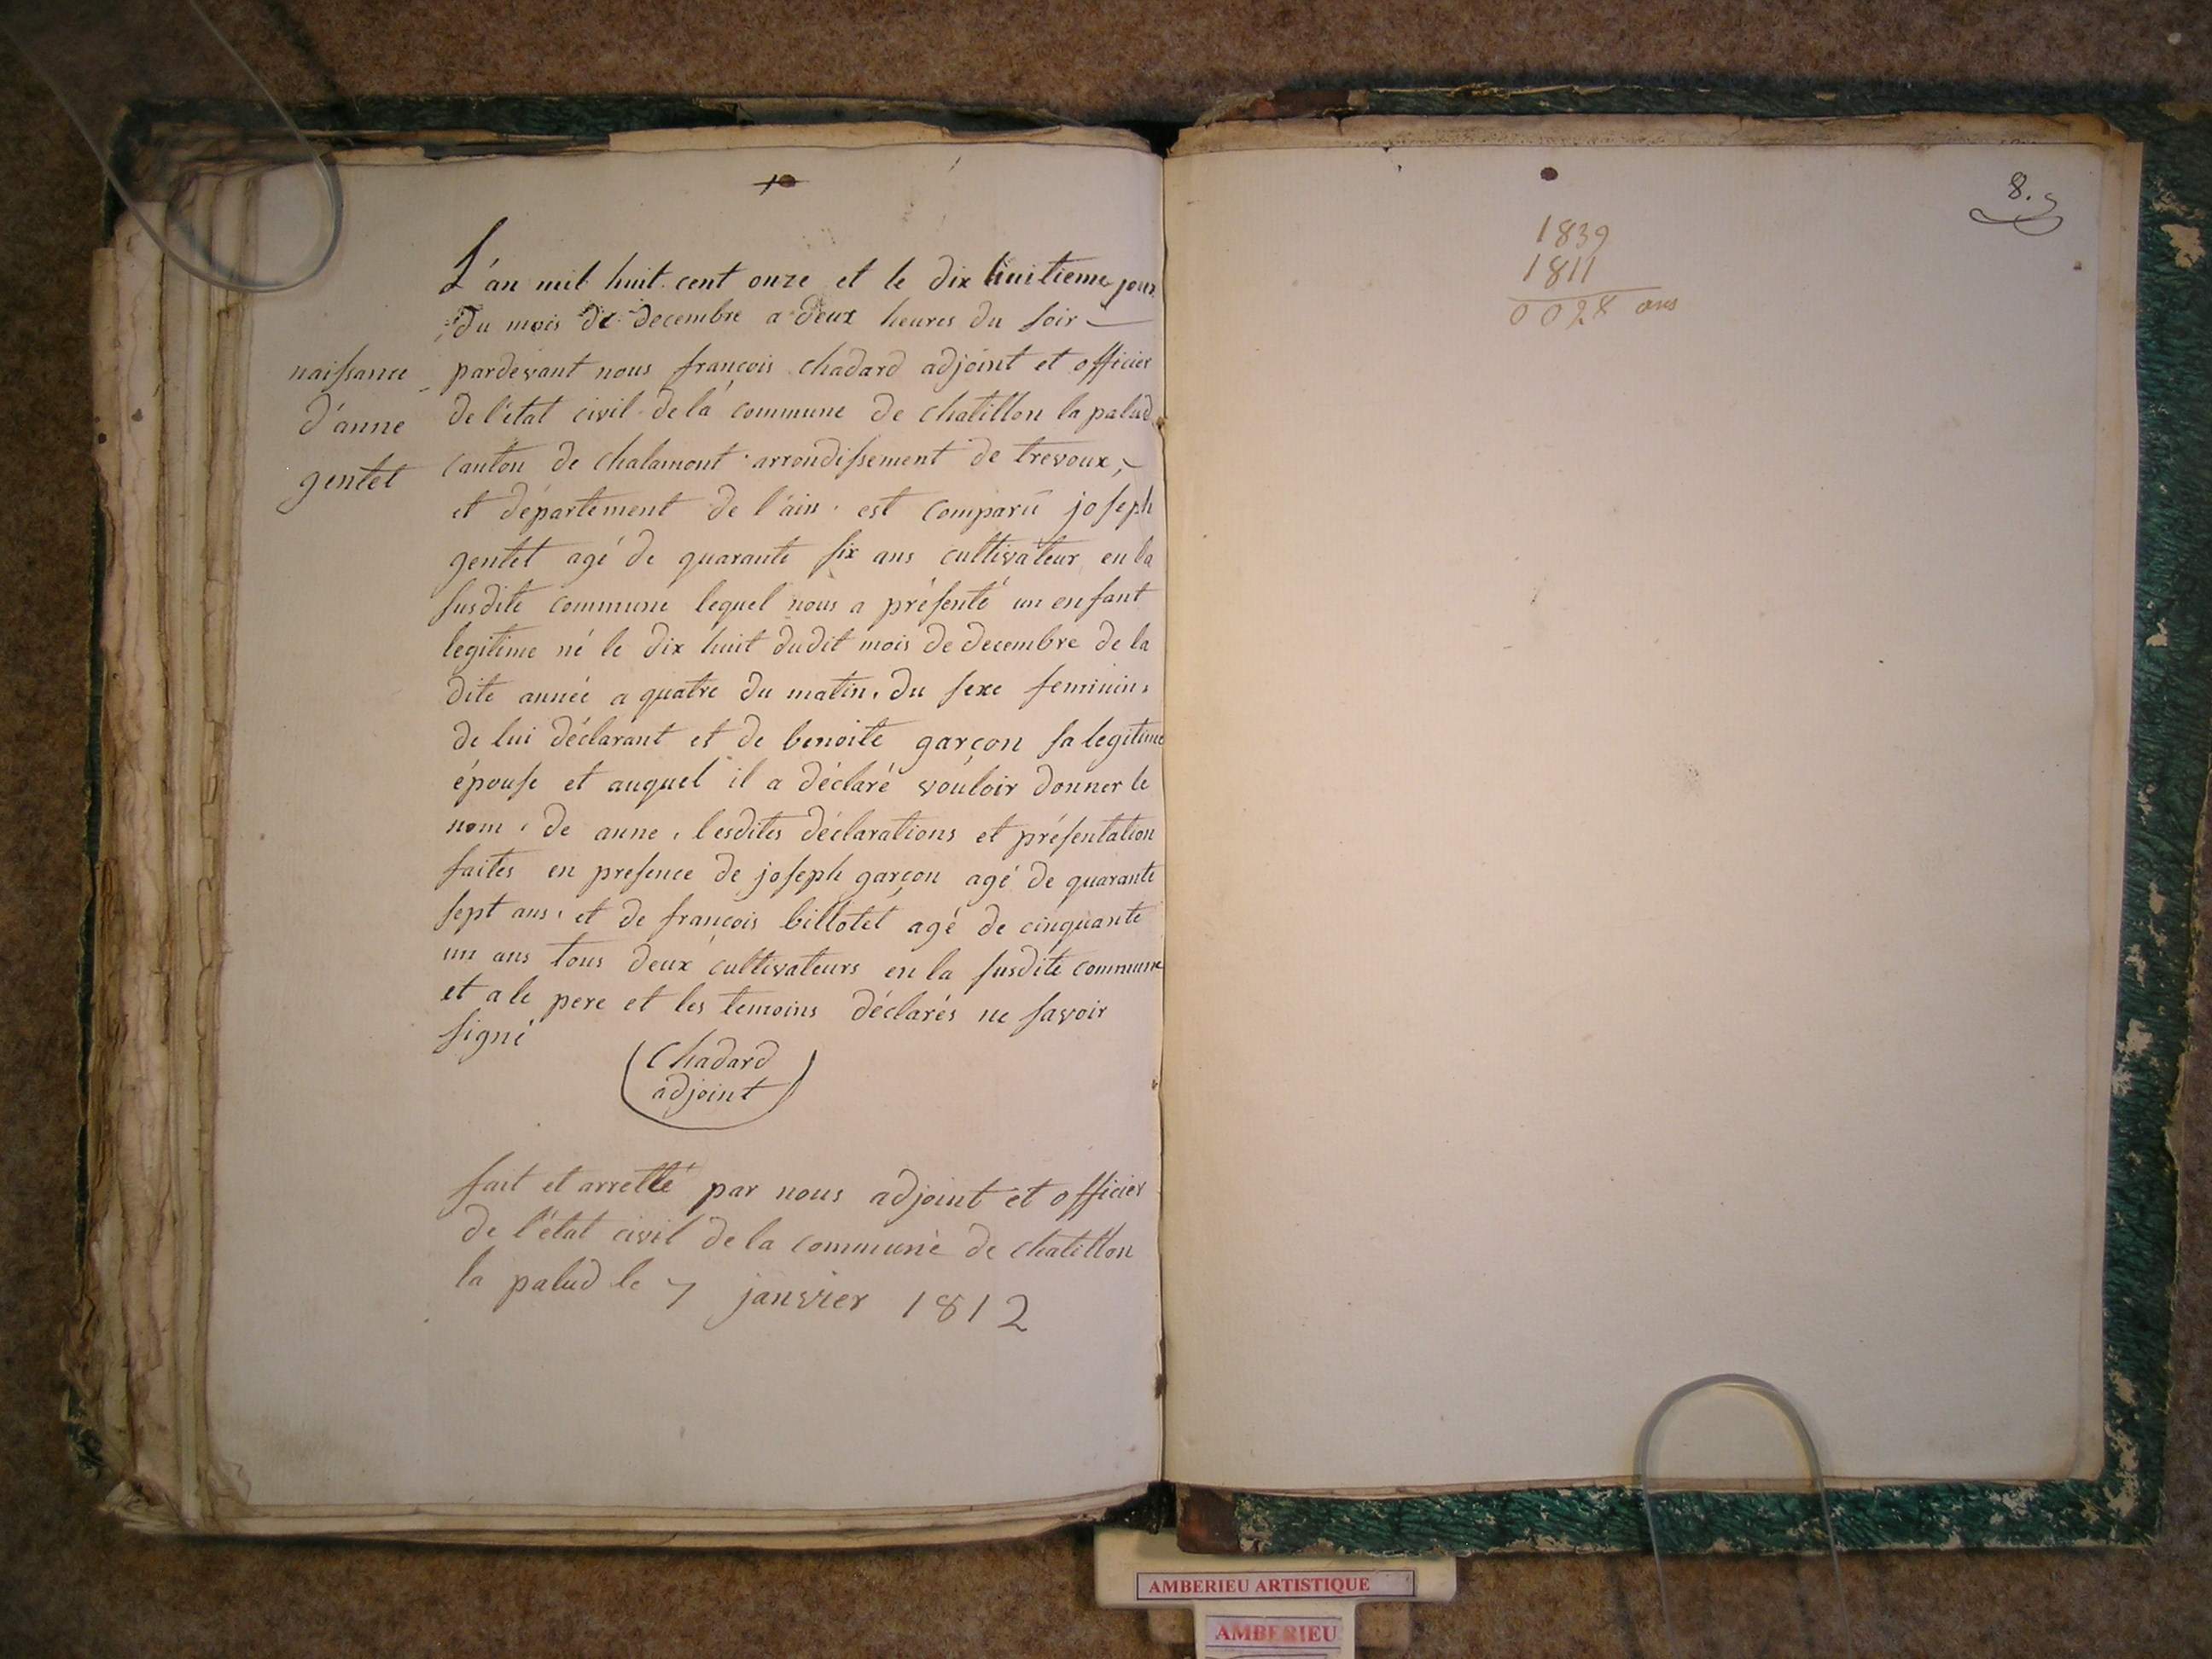 L'an mil huit cent onze et le dix huitieme jour
du mois de decembre a deux heures du soir
naissance
d'anne
gentet
pardevant nous françois chadard adjoint et officier
de l'état civil de la commune de chatillon la palud
canton de chalamont arrondissement de trevoux,
et département de l'ain. est comparu joseph
gentet agé de quarante six ans cultivateur en la
susdite commune lequel nous a présenté un enfant
legitime né le dix huit dudit mois de decembre de la
dite année a quatre du matin. du sexe feminin,
de lui déclarant et de benoite garçon sa legitime
épouse et auquel il a déclaré vouloir donner le
nom. de anne. lesdites déclarations et présentation
faites en presence de joseph garçon agé de quarante
sept ans. et de françois billotet agé de cinquante
un ans tous deux cultivateurs en la susdite commune
et a le pere et les temoins déclarés ne savoir
signé
Chadard
adjoint
fait et arretté par nous adjoint et officier
de l'état civil de la commune de chatillon
la palud le 7 janvier 1812
8.
1839
1811
0028 ans
AMBERIEU ARTISTIQUE
AMBERIEU